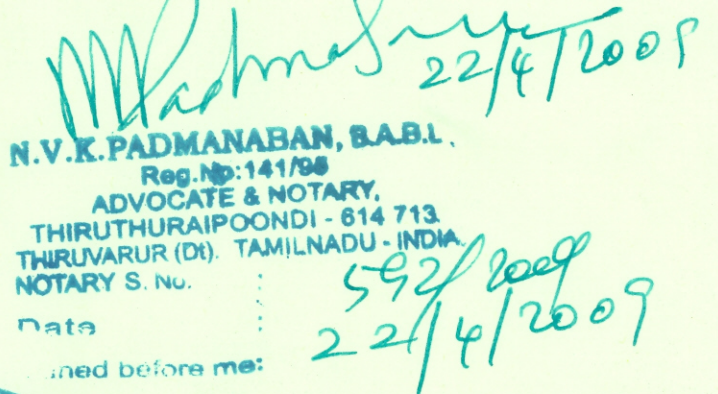 22/4/2009
N.V.K.PADMANABAN, B.A.B.L.
Reg.No:141/95
ADVOCATE & NOTARY,
THIRUTHURAIPOONDI - 614 713.
THIRUVARUR (Dt). TAMILNADU - INDIA.
NOTARY S. No. : 592/2009
Date : 22/4/2009
ned before me: